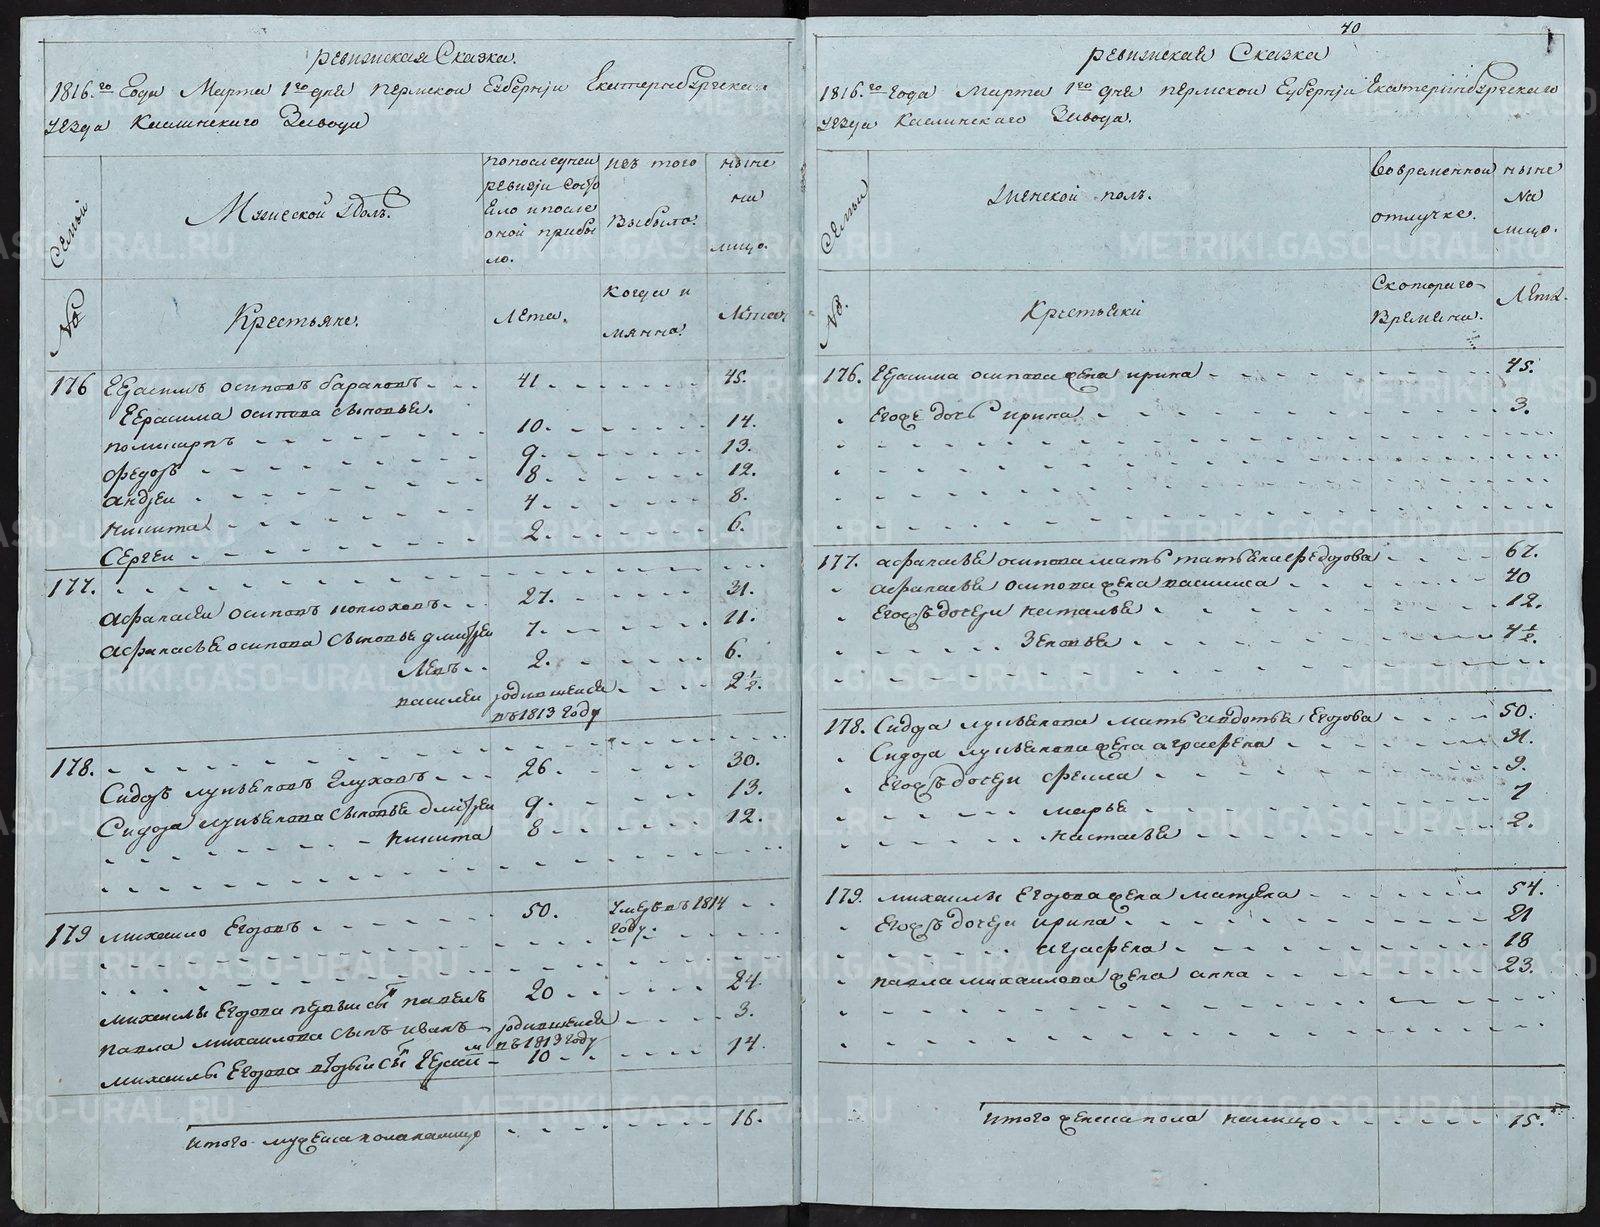 ревижская Сказка.
1816.го Года Марта 1го дня пермской Губернїи Екатеринбургскаго
уезда Каслинскаго Завода
Семьи
Мужеской полъ.
по последней ревизїи состояло и после оной прибыло.
изъ того Выбыло.
ныне на лицо.
№
Крестьяне.
Лета.
когда и мянно.
Лета
176 Герасимъ осиповъ барановъ 41. 45.
Герасима осипова сыновья.
поликарпъ 10. 14.
Федоръ 9. 13.
андреи 8 12.
никита 4 8.
Сергеи 2. 6.
177.
афанасеи осиповъ 27. 31.
афанасья осипова сыновья дмитреи 7. 11.
Левъ 2. 6.
василеи родившейся въ 1813 году 2 1/2.
178.
Сидоръ лукьяновъ Глуховъ 26. 30.
Сидора лукьянова сыновья дмитреи 9. 13.
никита 8 12.
179 михаило Егоровъ 50. умеръ въ 1814 году.
михаилы Егорова первыи сынъ павелъ 20 24
павла михаилова сынъ иванъ родившейся въ 1813 году 3.
михаилы Егорова вторыи сынъ Герасимъ 10 14.
итого мужеска пола налицо 16.
40
ревижская Сказка
1816.го Года Марта 1го дня пермской Губернїи Екатеринбургскаго
уезда Каслинскаго Завода.
Семьи
Женской полъ.
Вовременной отлучке.
ныне На лицо.
№.
Крестьянки
Скотораго Времени.
Лета.
176. Герасима осипова жена ирина 45.
Его же дочь ирина 3.
177. афанасья осипова мать татьяна федорова 67.
афанасья осипова жена василиса 40
Его жъ дочери наталья 12.
Зеновья 4 1/2.
178. Сидора лукьянова мать авдотья Егорова 50.
Сидора лукьянова жена аграфена 31.
Его жъ дочери фекла 9.
марья 7
настасья 2.
179. михаилы Егорова жена матрена 54.
Его жъ дочери ирина 21
аграфена 18
павла михаилова жена анна 23.
итого женска пола налицо 15.
METRIKI.GASO-URAL.RU